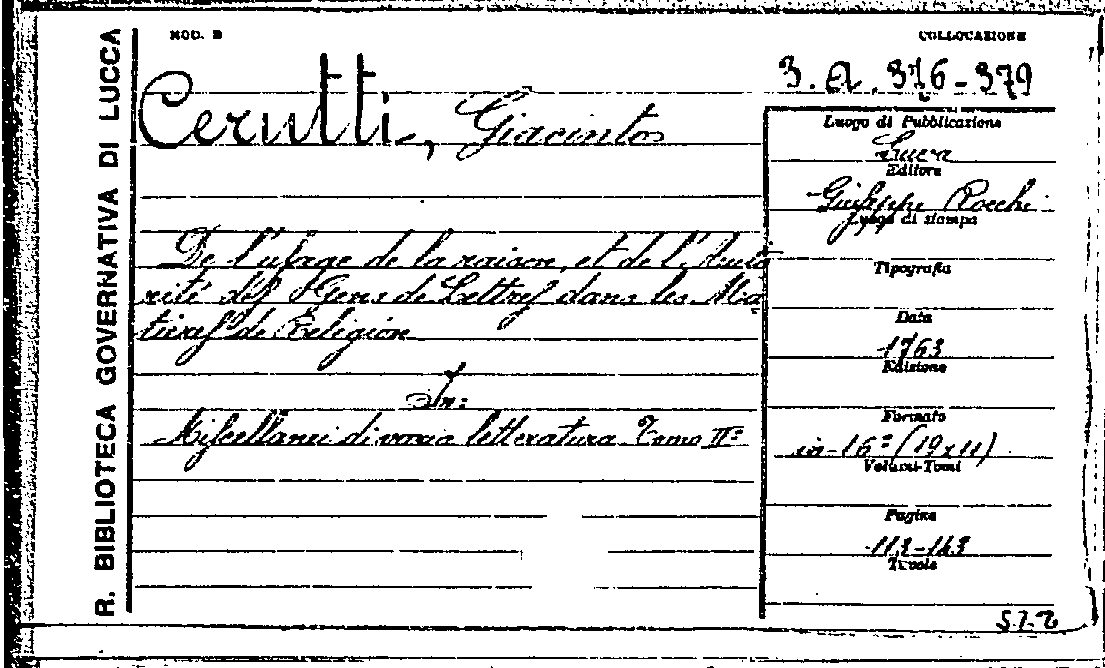 R. BIBLIOTECA GOVERNATIVA DI LUCCA
MOD. B
COLLOCAZIONE
3. a. 376-379
Cerutti, Giacinto
De l'usage de la raison, et de l'Auto
rité des Gens de Lettres dans les Ma
tieres de Religion
In:
Miscellanei di varia letteratura Tomo II°
Luogo di Pubblicazione
Lucca
Editore
Giuseppe Rocchi
Luogo di stampa
Tipografia
Data
1763
Edizione
Formato
in-16° (19x11)
Volumi-Tomi
Pagine
113-143
Tavole